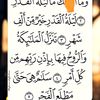 وَمَا أَدْرَىٰكَ مَا لَيْلَةُ الْقَدْرِ
لَيْلَةُ الْقَدْرِ خَيْرٌ مِّنْ أَلْفِ
شَهْرٍ تَنَزَّلُ الْمَلَٰٓئِكَةُ
وَالرُّوحُ فِيهَا بِإِذْنِ رَبِّهِم مِّن
كُلِّ أَمْرٍ سَلَٰمٌ هِيَ حَتَّىٰ
مَطْلَعِ الْفَجْرِ